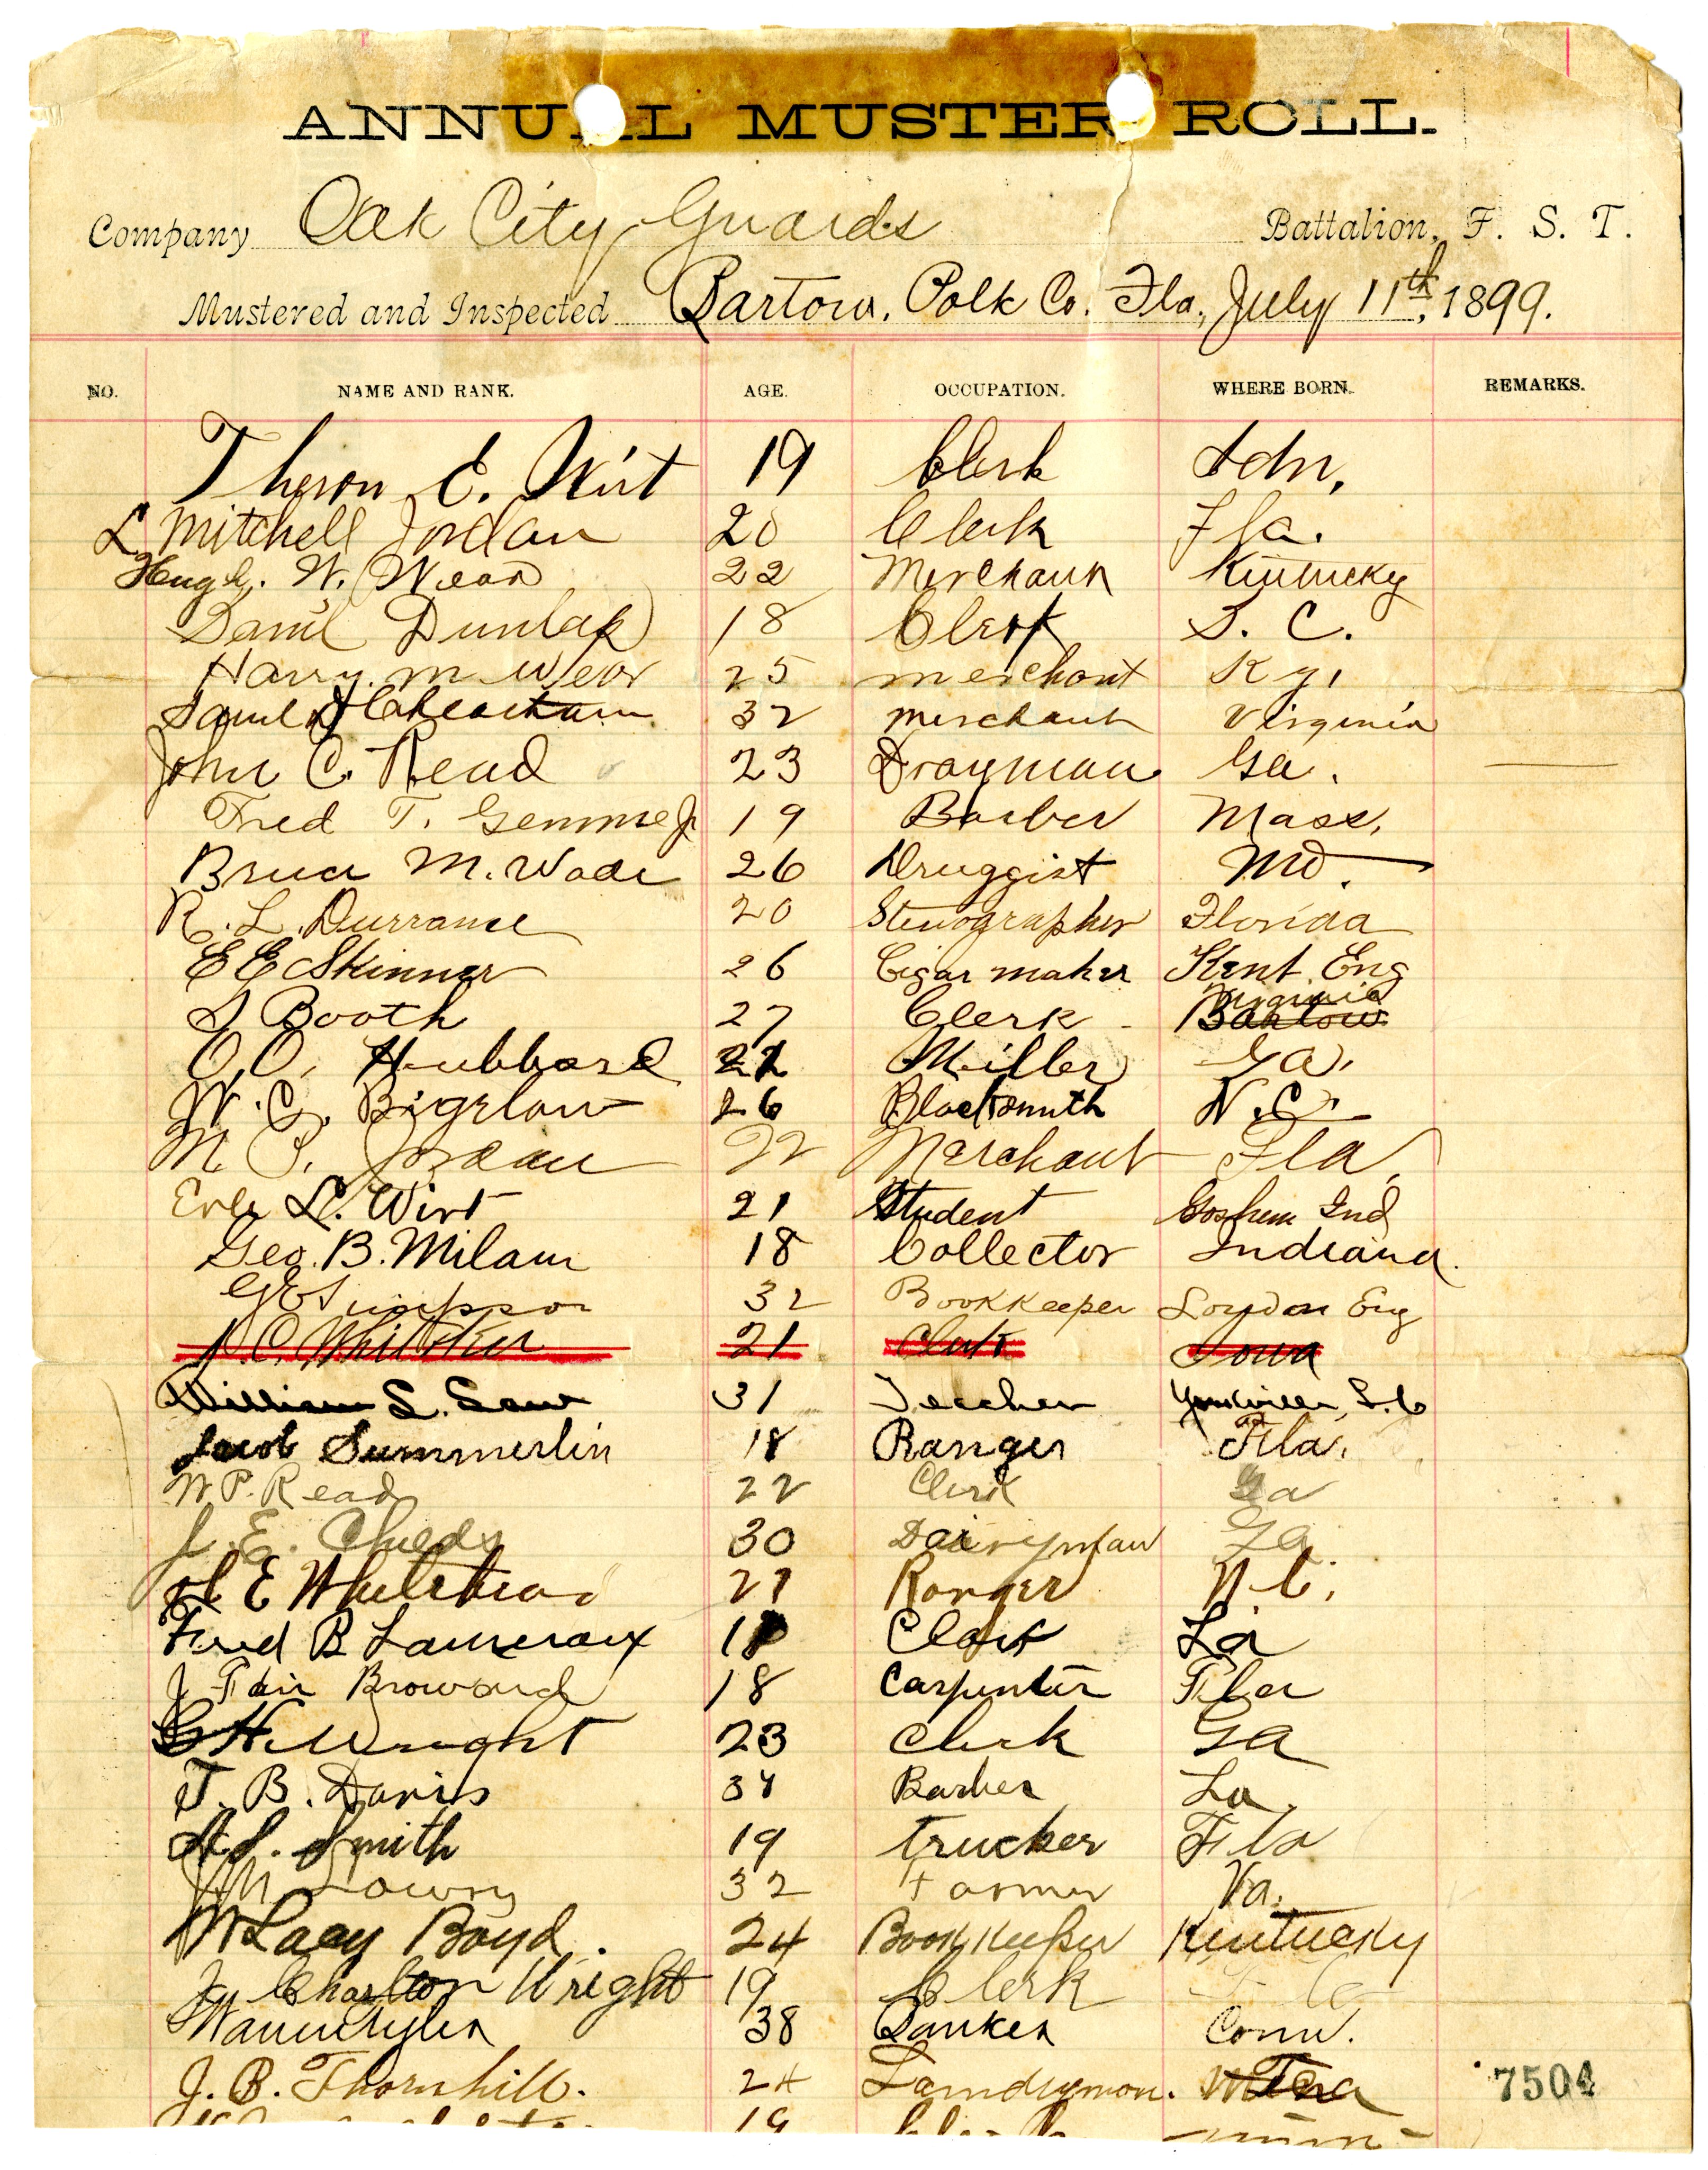 ANNUAL MUSTER ROLL.
Company Oak City Guards Battalion, F. S. T.
Mustered and Inspected Bartow, Polk Co. Fla, July 11th, 1899.
NO. NAME AND RANK. AGE. OCCUPATION. WHERE BORN. REMARKS.
Theron E. Wirt 19 Clerk Ind,
L. Mitchell Jordan 20 Clerk Fla.
Hugh. W. Wear 22 Merchant Kentucky
Saml Dunlap 18 Clerk S. C.
Harry M Wear 25 merchant Ky,
Saml 32 merchant Virginia
John C. Read 23 Drayman Ga.
Fred T. Gemme Jr 19 Barber Mass,
Bruce M. Wade 26 Druggist Md.
R. L. Durrance 20 Stenographer Florida
E E Skinner 26 Cigar maker Kent Eng
S Booth 27 Clerk Virginia Bartow
O. O. Hubbard 22 Miller Ga.
W. C. Bigelow 26 Blacksmith N.C.
M. P. Jordan 22 Merchant Fla,
Erle L. Wirt 21 Student Goshen Ind
Geo. B. Milam 18 Collector Indiana.
G E Simpson 32 Bookkeeper London Eng
J. C. Whitaker 21 Clerk Iowa
William L. 31 Teacher Yorkville, S. C
Jacob Summerlin 18 Ranger Fla.
W P. Read 22 Clerk Ga
J. E. Childs 30 Dairyman Ga.
E Whitehead Ranger N.C.
Fred B Lameraux Clerk La
J Fain Broward 18 Carpenter Fla
Wright 23 Clerk Ga
T. B. Davis Barber La.
Smith 19 trucker Fla
Lowry 32 Farmer Va.
W Lacy Boyd. 24 Book Keeper Kentucky
Charlton Wright 19 Clerk
38 Banker Conn.
J. B. Thornhill. 24 Laundryman.
7504
19